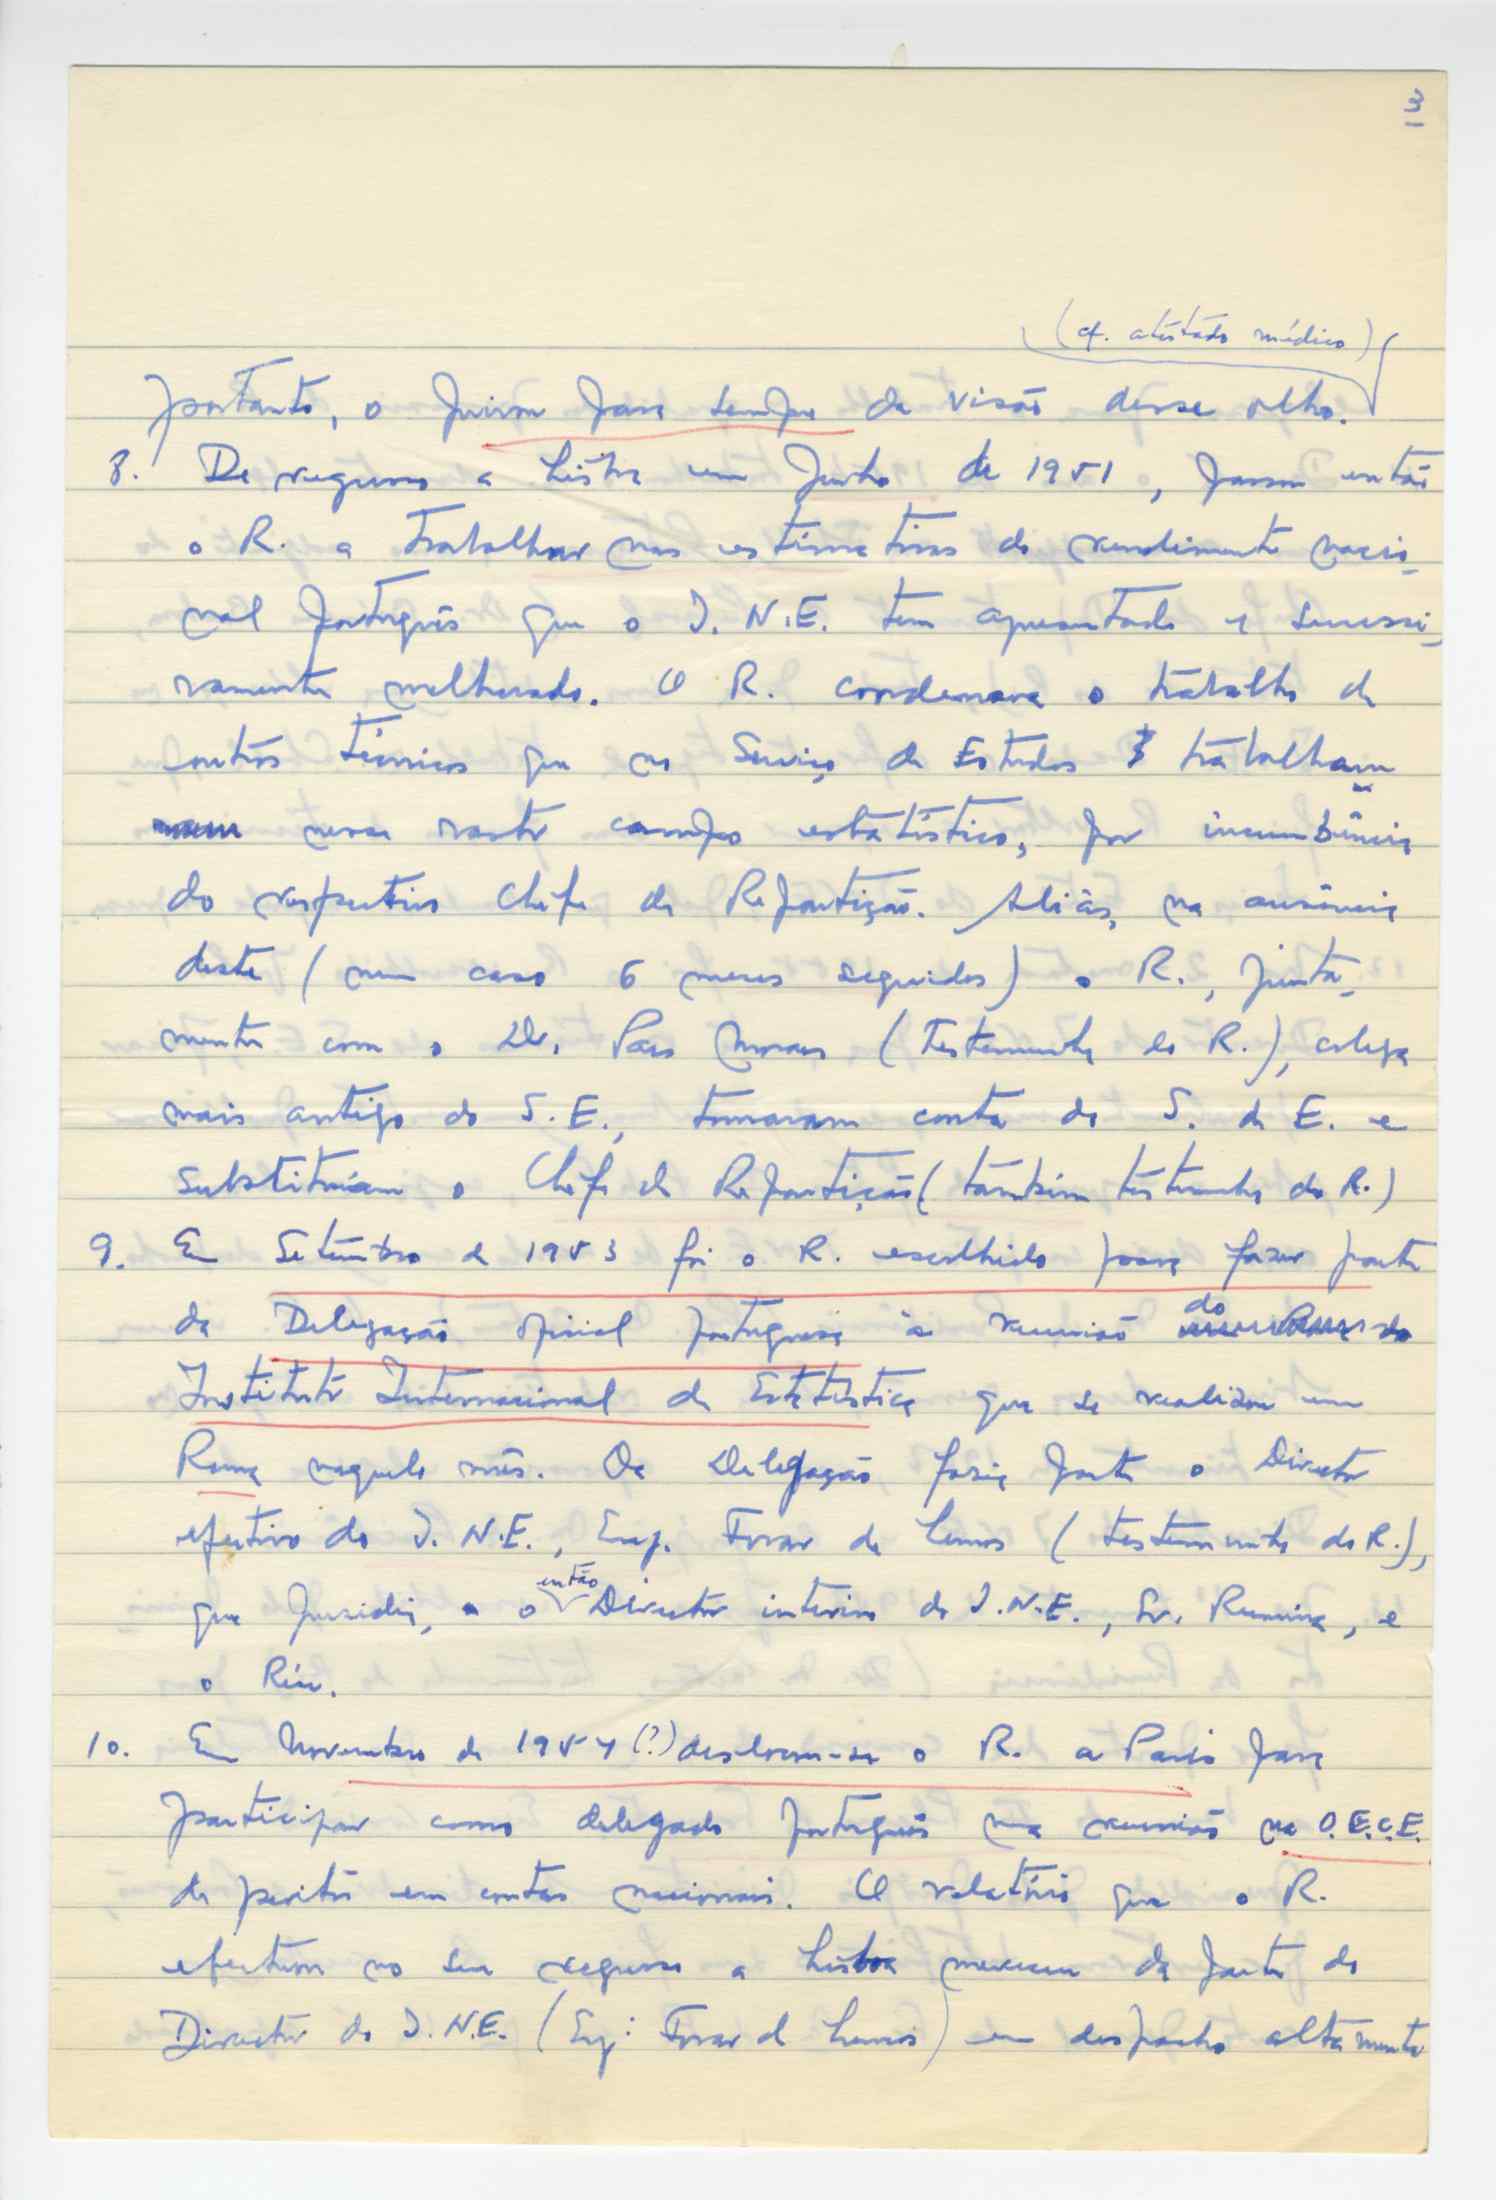 3
(cf. atestado médico)
portanto, o privou para sempre da visão desse olho.
8. De regresso a Lisboa em Junho de 1951, passou então
o R. a trabalhar nas estimativas do rendimento nacio-
nal português que o I.N.E. tem apresentado e sucessi-
vamente melhorado. O R. coordenava o trabalho de
outros técnicos que no Serviço de Estudos trabalham
nesse vasto campo estatístico, por incumbência
do respectivo Chefe de Repartição. Aliás, na ausência
deste (num caso 6 meses seguidos) o R., junta-
mente com o Dr. Pais Morais (testemunha do R.), colega
mais antigo do S.E., tomaram conta do S. de E. e
substituíam o Chefe de Repartição (também testemunha do R.)
9. Em Setembro de 1953 foi o R. escolhido para fazer parte
da Delegação oficial portuguesa à reunião do
Instituto Internacional de Estatística que se realizou em
Roma naquele mês. Da Delegação fazia parte o Director
efectivo do I.N.E., Eng. Tovar de Lemos (testemunha do R.),
que presidia, o então Director interino do I.N.E., Sr. , e
o Réu.
10. Em Novembro de 1954 (?) deslocou-se o R. a Paris para
participar como delegado português na reunião na O.E.C.E.
de peritos em contas nacionais. O relatório que o R.
efectuou no seu regresso a Lisboa mereceu da parte do
Director do I.N.E. (Eng. Tovar de Lemos) um despacho altamente